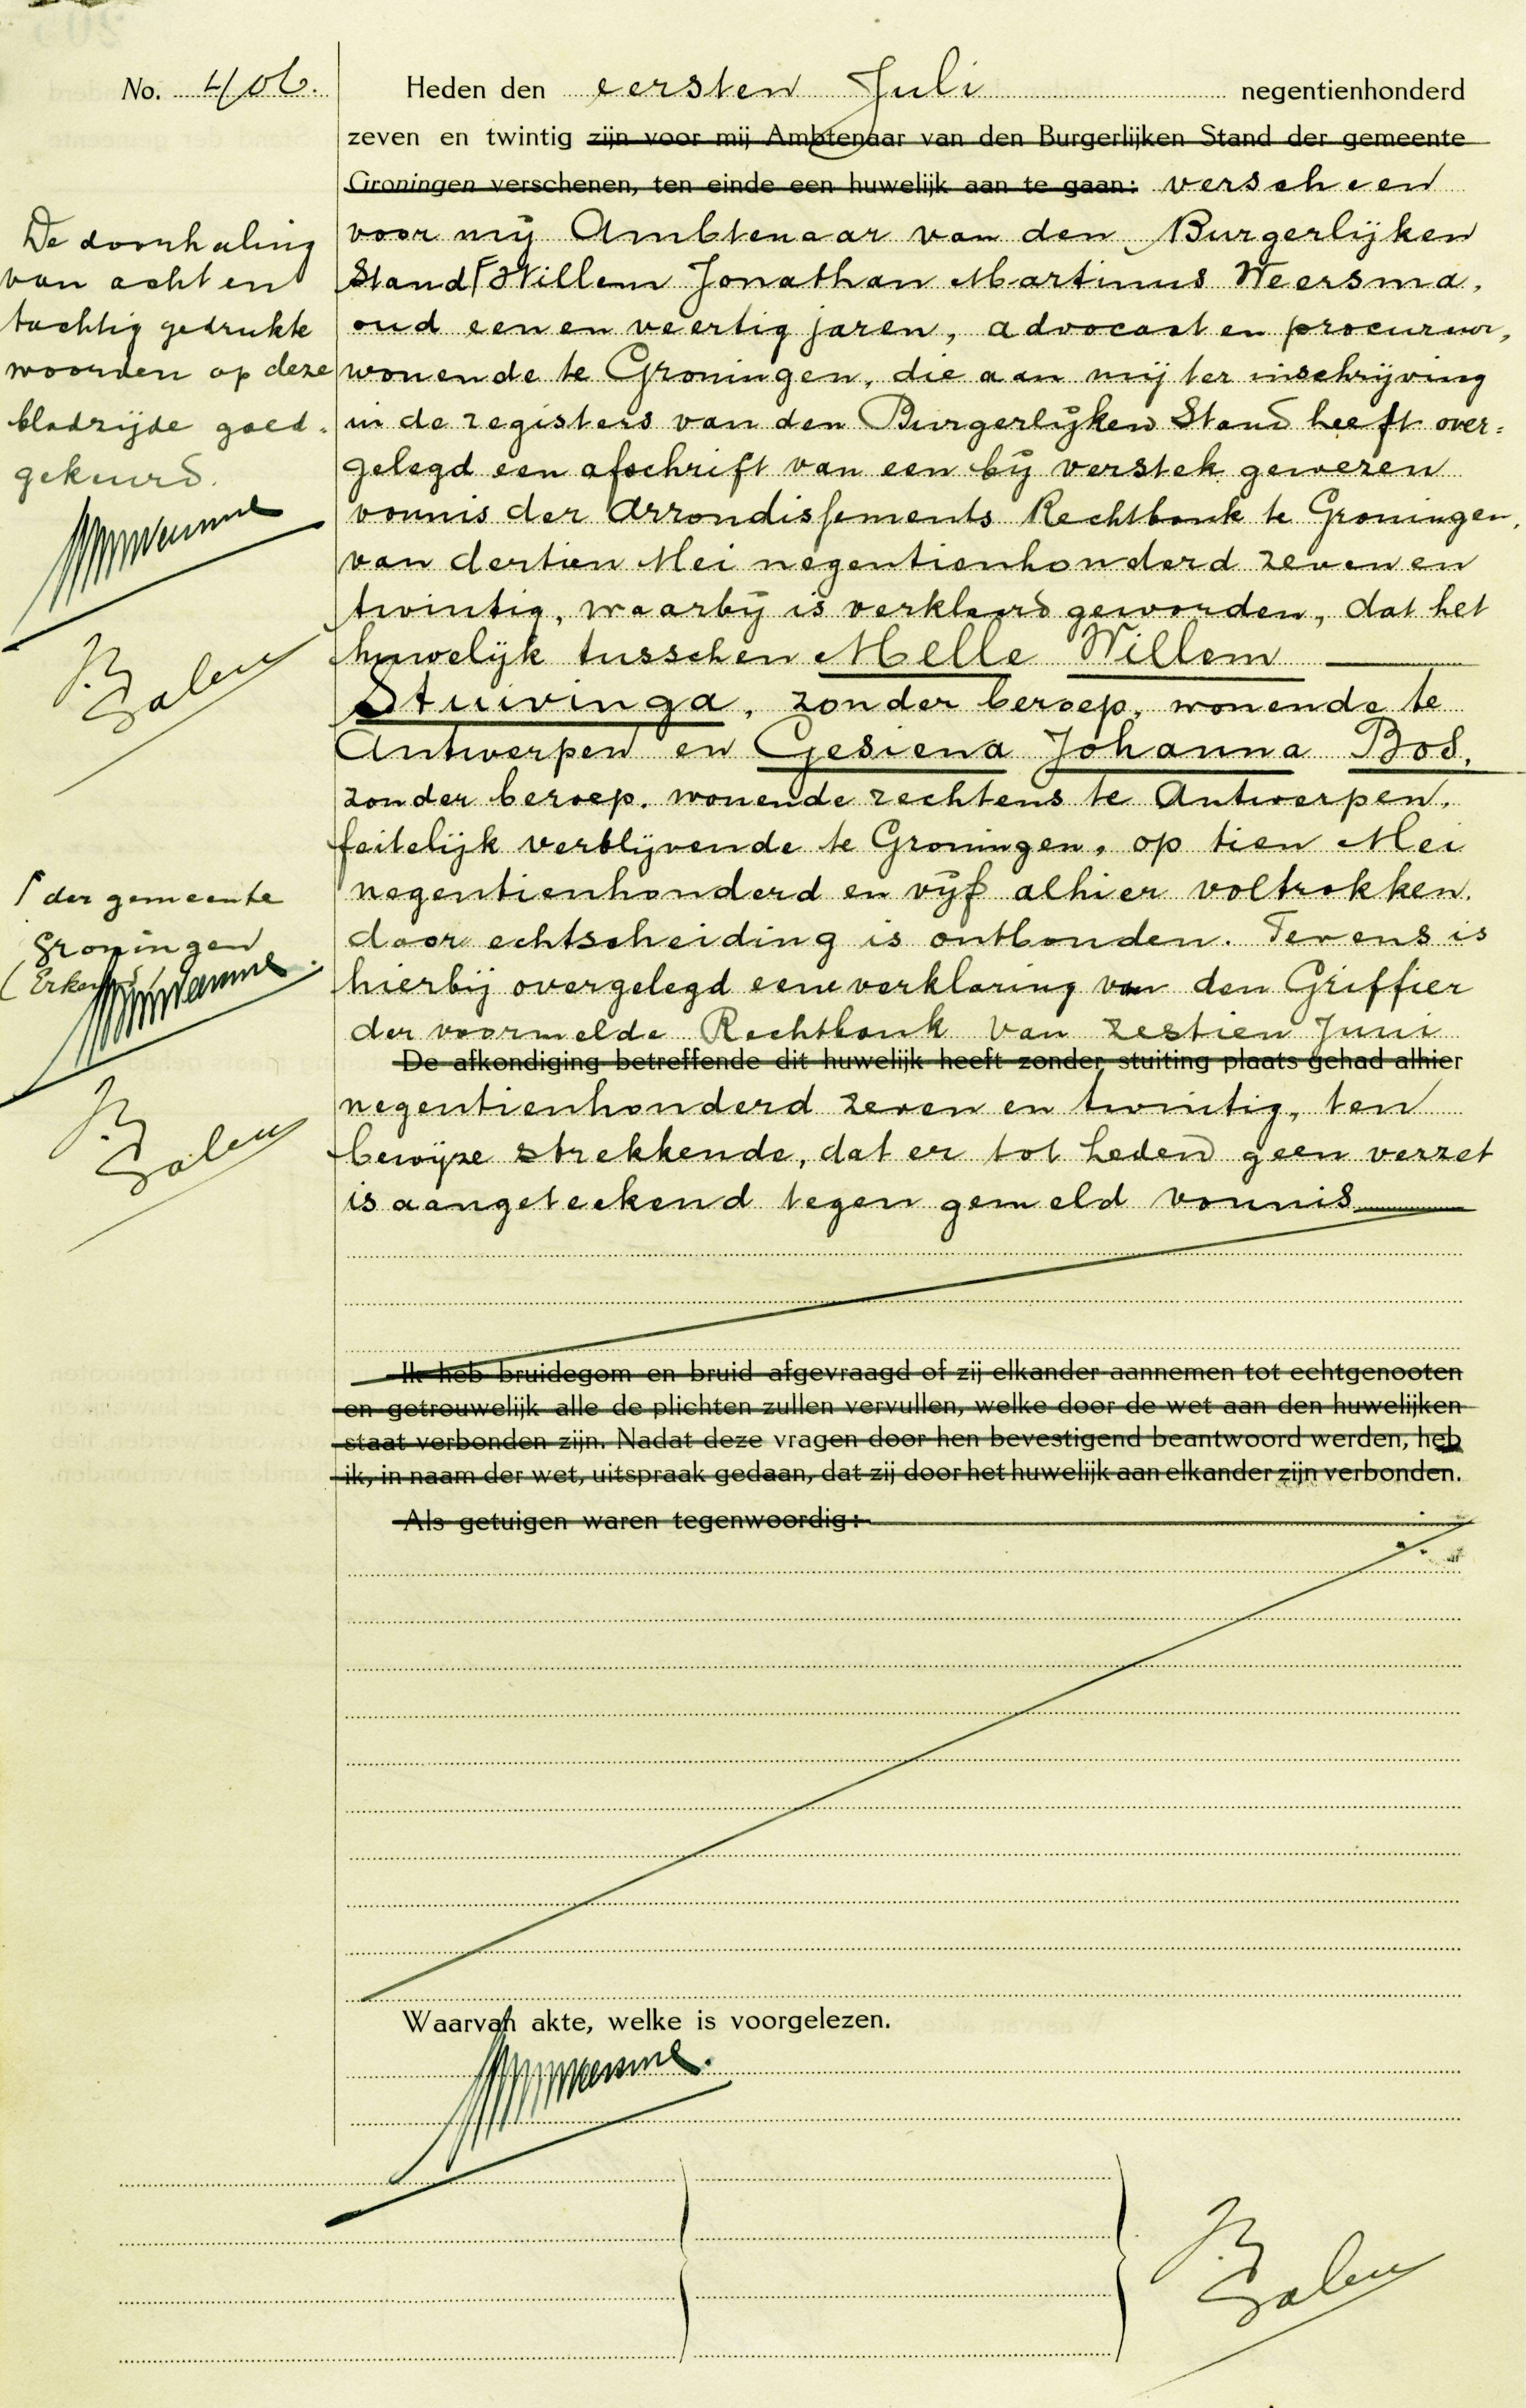 No. 406.
Heden den eersten Juli negentienhonderd
zeven en twintig zijn voor mij Ambtenaar van den Burgerlijken Stand der gemeente
Groningen verschenen, ten einde een huwelijk aan te gaan: verscheen
voor mij Ambtenaar van den Burgerlijken
Stand Willem Jonathan Martinus Weersma,
oud een en veertig jaren, advocaat en procureur,
wonende te Groningen, die aan mij ter inschrijving
in de registers van den Burgerlijken Stand heeft over=
gelegd een afschrift van een bij verstek gewezen
vonnis der Arrondissements Rechtbank te Groningen,
van dertien Mei negentienhonderd zeven en
twintig, waarbij is verklaard geworden, dat het
huwelijk tusschen Melle Willem
Stuivinga, zonder beroep, wonende te
Antwerpen en Gesiena Johanna Bos,
zonder beroep, wonende rechtens te Antwerpen,
feitelijk verblijvende te Groningen, op tien Mei
negentienhonderd en vijf alhier voltrokken,
door echtscheiding is ontbonden. Tevens is
hierbij overgelegd eene verklaring van den Griffier
der voormelde Rechtbank van zestien Juni
De afkondiging betreffende dit huwelijk heeft zonder stuiting plaats gehad alhier
negentienhonderd zeven en twintig, ten
bewijze strekkende, dat er tot heden geen verzet
is aangeteekend tegen gemeld vonnis
Ik heb bruidegom en bruid afgevraagd of zij elkander aannemen tot echtgenooten
en getrouwelijk alle de plichten zullen vervullen, welke door de wet aan den huwelijken
staat verbonden zijn. Nadat deze vragen door hen bevestigend beantwoord werden, heb
ik, in naam der wet, uitspraak gedaan, dat zij door het huwelijk aan elkander zijn verbonden.
Als getuigen waren tegenwoordig:
Waarvan akte, welke is voorgelezen.
De doorhaling
van acht en
tachtig gedrukte
woorden op deze
bladzijde goed=
gekeurd.
der gemeente
Groningen